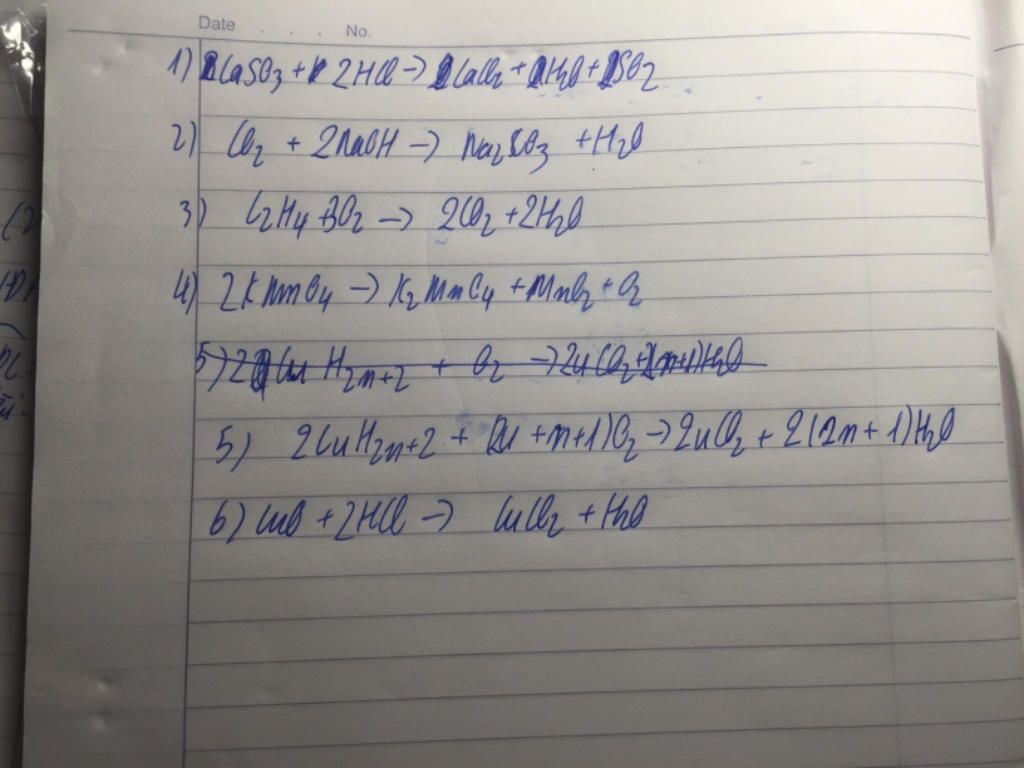 Date . . . . No.
1) CaSO3 + 2HCl → CaCl2 + H2O + SO2
2) CO2 + 2NaOH → Na2CO3 + H2O
3) C2H4 + 3O2 → 2CO2 + 2H2O
4) 2KMnO4 → K2MnO4 + MnO2 + O2
5) 2CnH2n+2 + O2 → 2nCO2 + 2(n+1)H2O
5) 2CnH2n+2 + (2n+n+1)O2 → 2nCO2 + 2(2n+1)H2O
6) CuO + 2HCl → CuCl2 + H2O